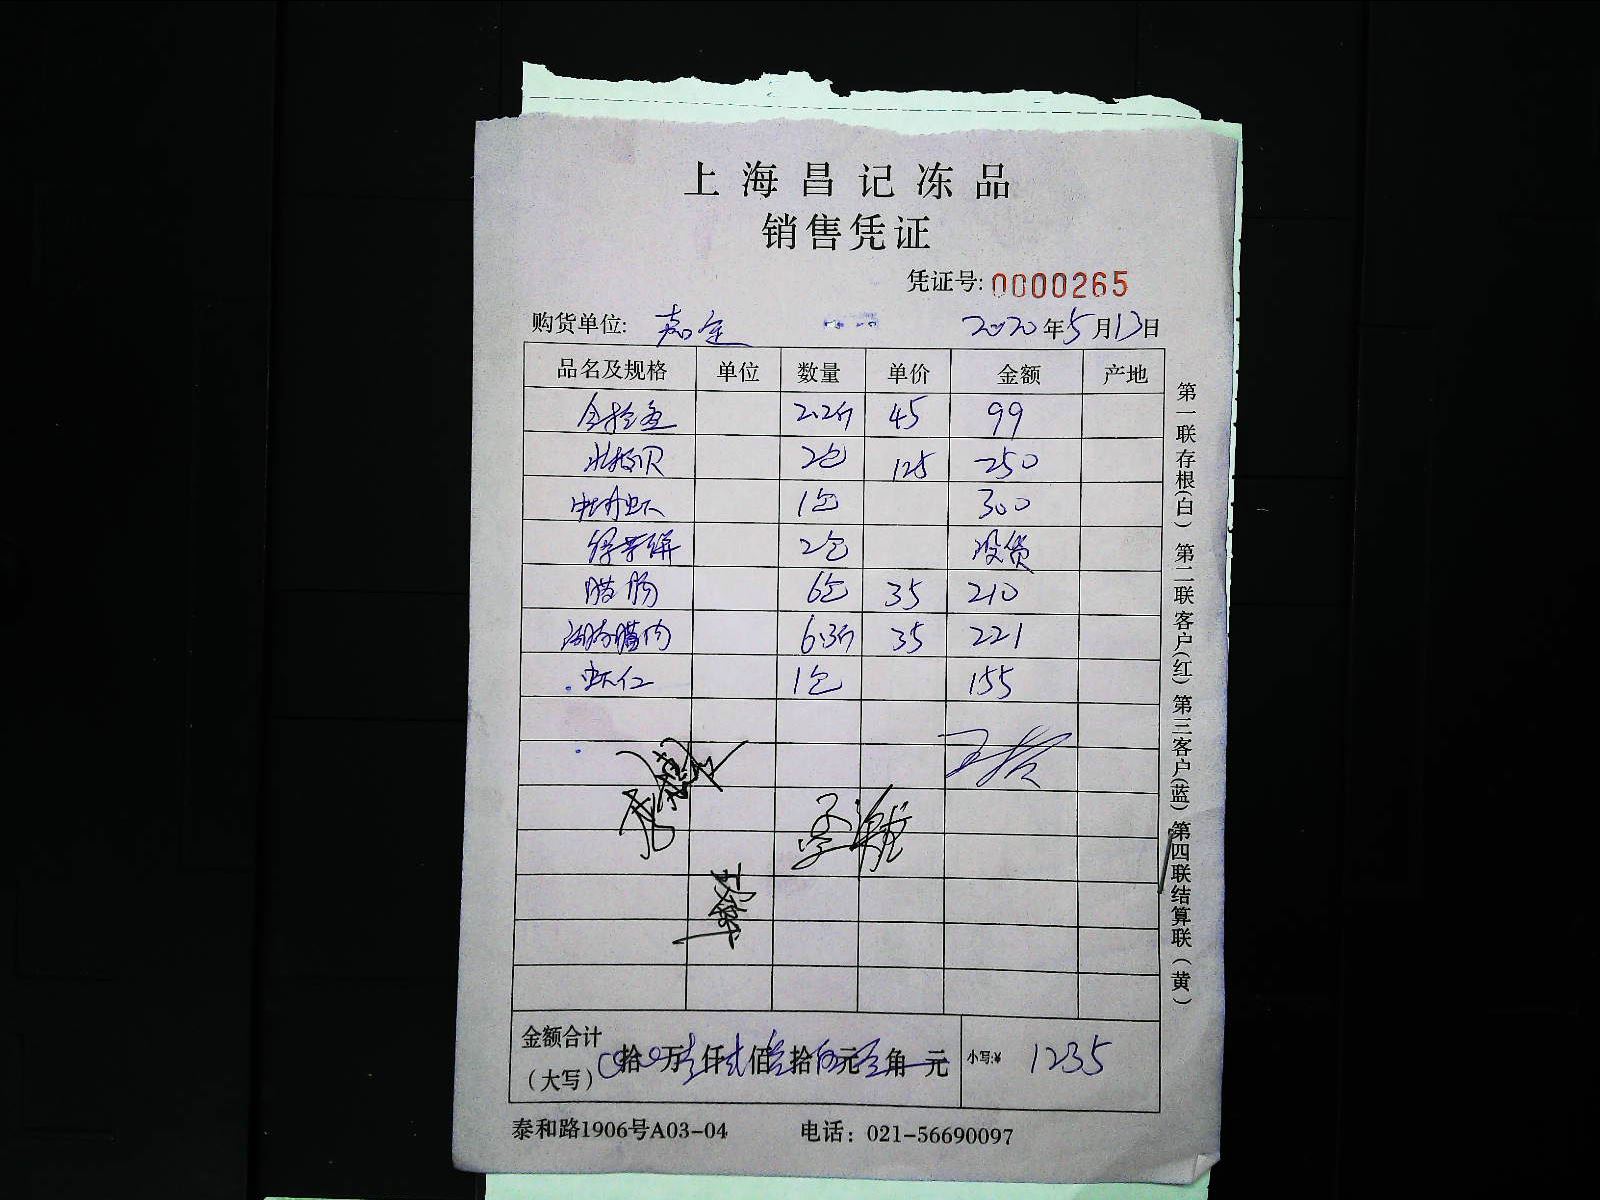 上海昌记冻品
销售凭证
凭证号: 0000265
购货单位: 嘉定 2020年5月13日
品名及规格 单位 数量 单价 金额 产地
2.2斤 45 99
2包 125 250
1包 300
2包 没货
腊肠 6包 35 210
腊肉 6.3斤 35 221
虾仁 1包 155
金额合计
(大写) 拾万壹仟贰佰叁拾伍元 角 元 小写:¥ 1235
泰和路1906号A03-04 电话: 021-56690097
第一联存根(白) 第二联客户(红) 第三客户(蓝) 第四联结算联(黄)